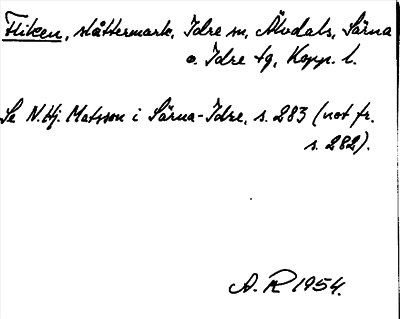 Fliken, slåttermark, Idre sn, Älvdals, Särna
o. Idre tg, Kopp. l.
Se N. Hj. Matsson i Särna-Idre, s. 283 (not fr.
s. 282).
A. R 1954.